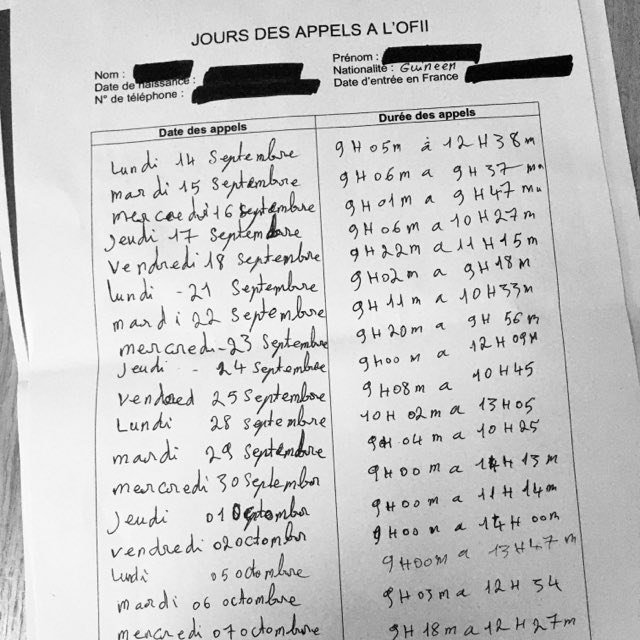 JOURS DES APPELS A L'OFII
Nom :
Prénom :
Date de naissance :
Nationalité : Guineen
N° de téléphone :
Date d'entrée en France
Date des appels Durée des appels
Lundi 14 Septembre 9H05m à 12H38m
mardi 15 Septembre 9H06m a 9H37mn
mercredi 16 Septembre 9H01m a 9H47mn
Jeudi 17 Septembre 9H06m a 10H27m
Vendredi 18 Septembre 9H22m a 11H15m
lundi - 21 Septembre 9H02m a 9H18m
mardi 22 Septembre 9H11m a 10H33m
mercredi - 23 Septembre 9H20m a 9H56m
Jeudi - 24 Septembre 9H00m a 12H09m
Vendred 25 Septembre 9H08m a 10H45
Lundi 28 septembre 10H02m a 13H05
mardi 29 Septembre 9H04m a 10H25
mercredi 30 Septembre 9H00m a 14H13m
Jeudi 01 9H00m a 11H14m
vendredi 02 octombre 9H00m a 14H00m
Lundi 05 octombre 9H00m a 13H47m
mardi 06 octombre 9H03m a 12H54
mercredi 07 octombre 9H18m a 12H27m